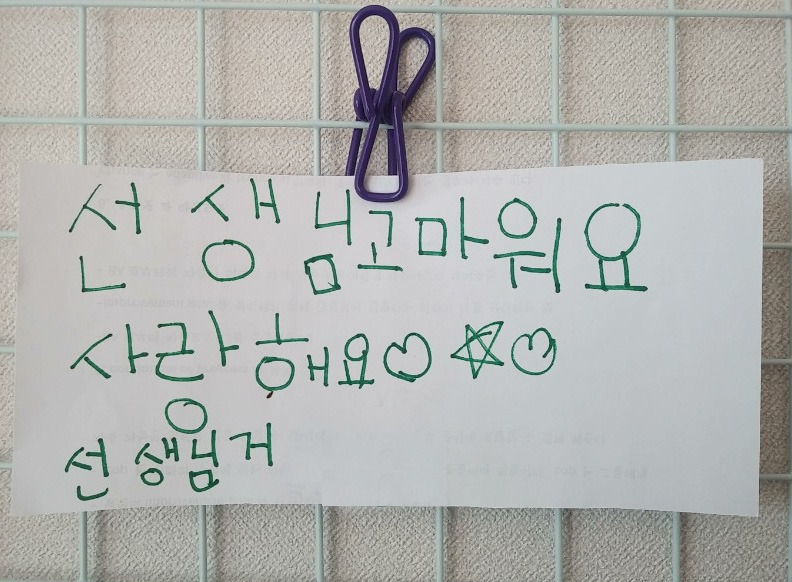 선생님고마워요
사랑해요♡☆♡
선생님거